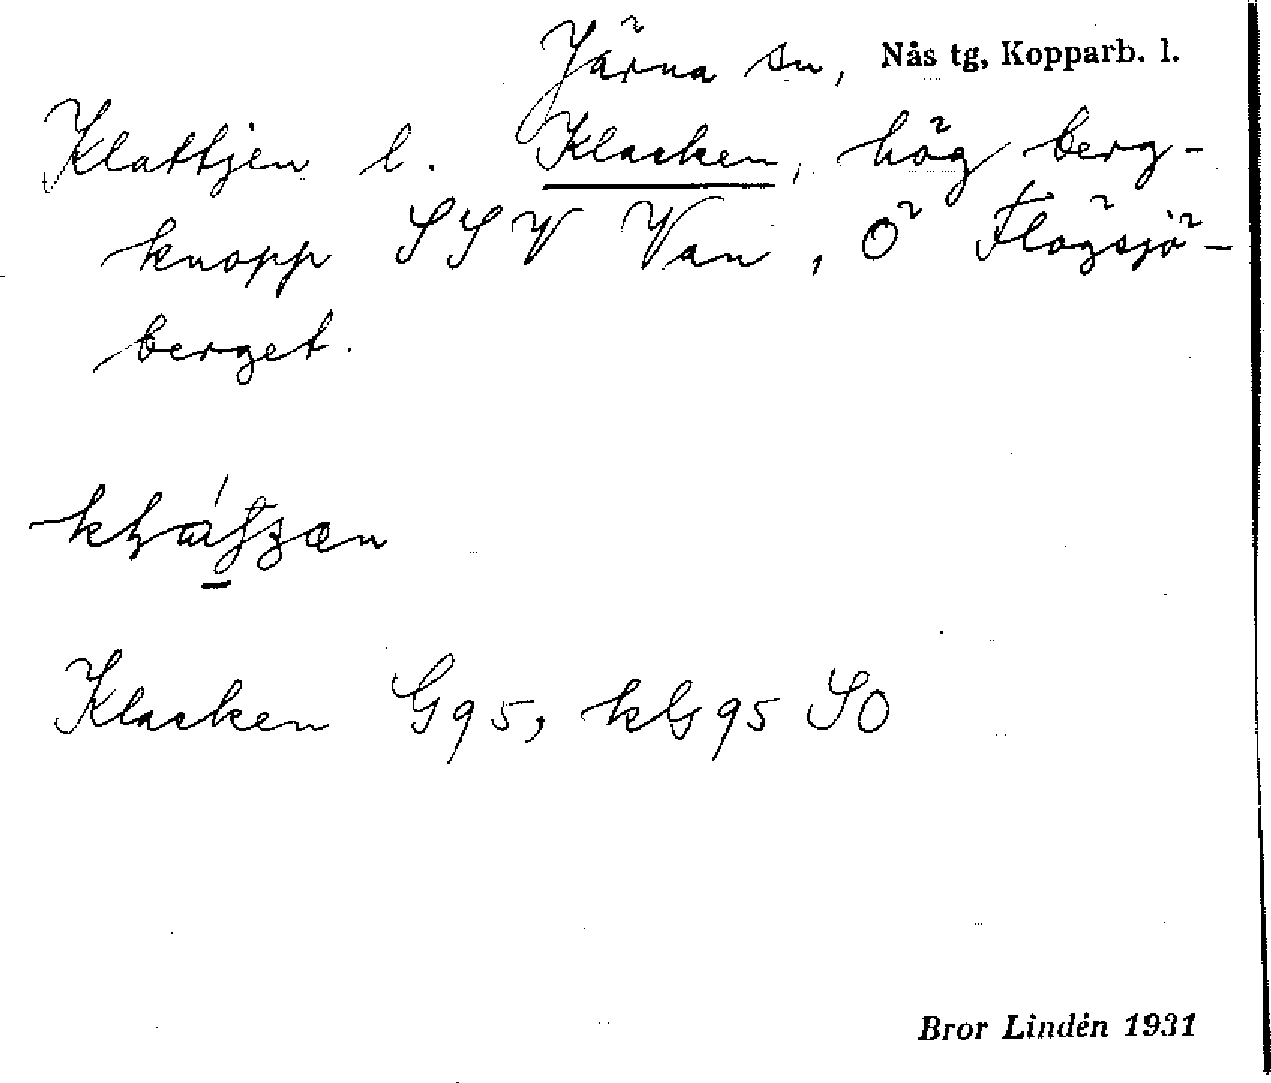 Järna sn, Nås tg, Kopparb. l.
Klattjen l. Klacken, hög berg-
knopp SSV Van, Ö Flögsjö-
berget.
Klacken G95, kG95 SO
Bror Lindén 1931